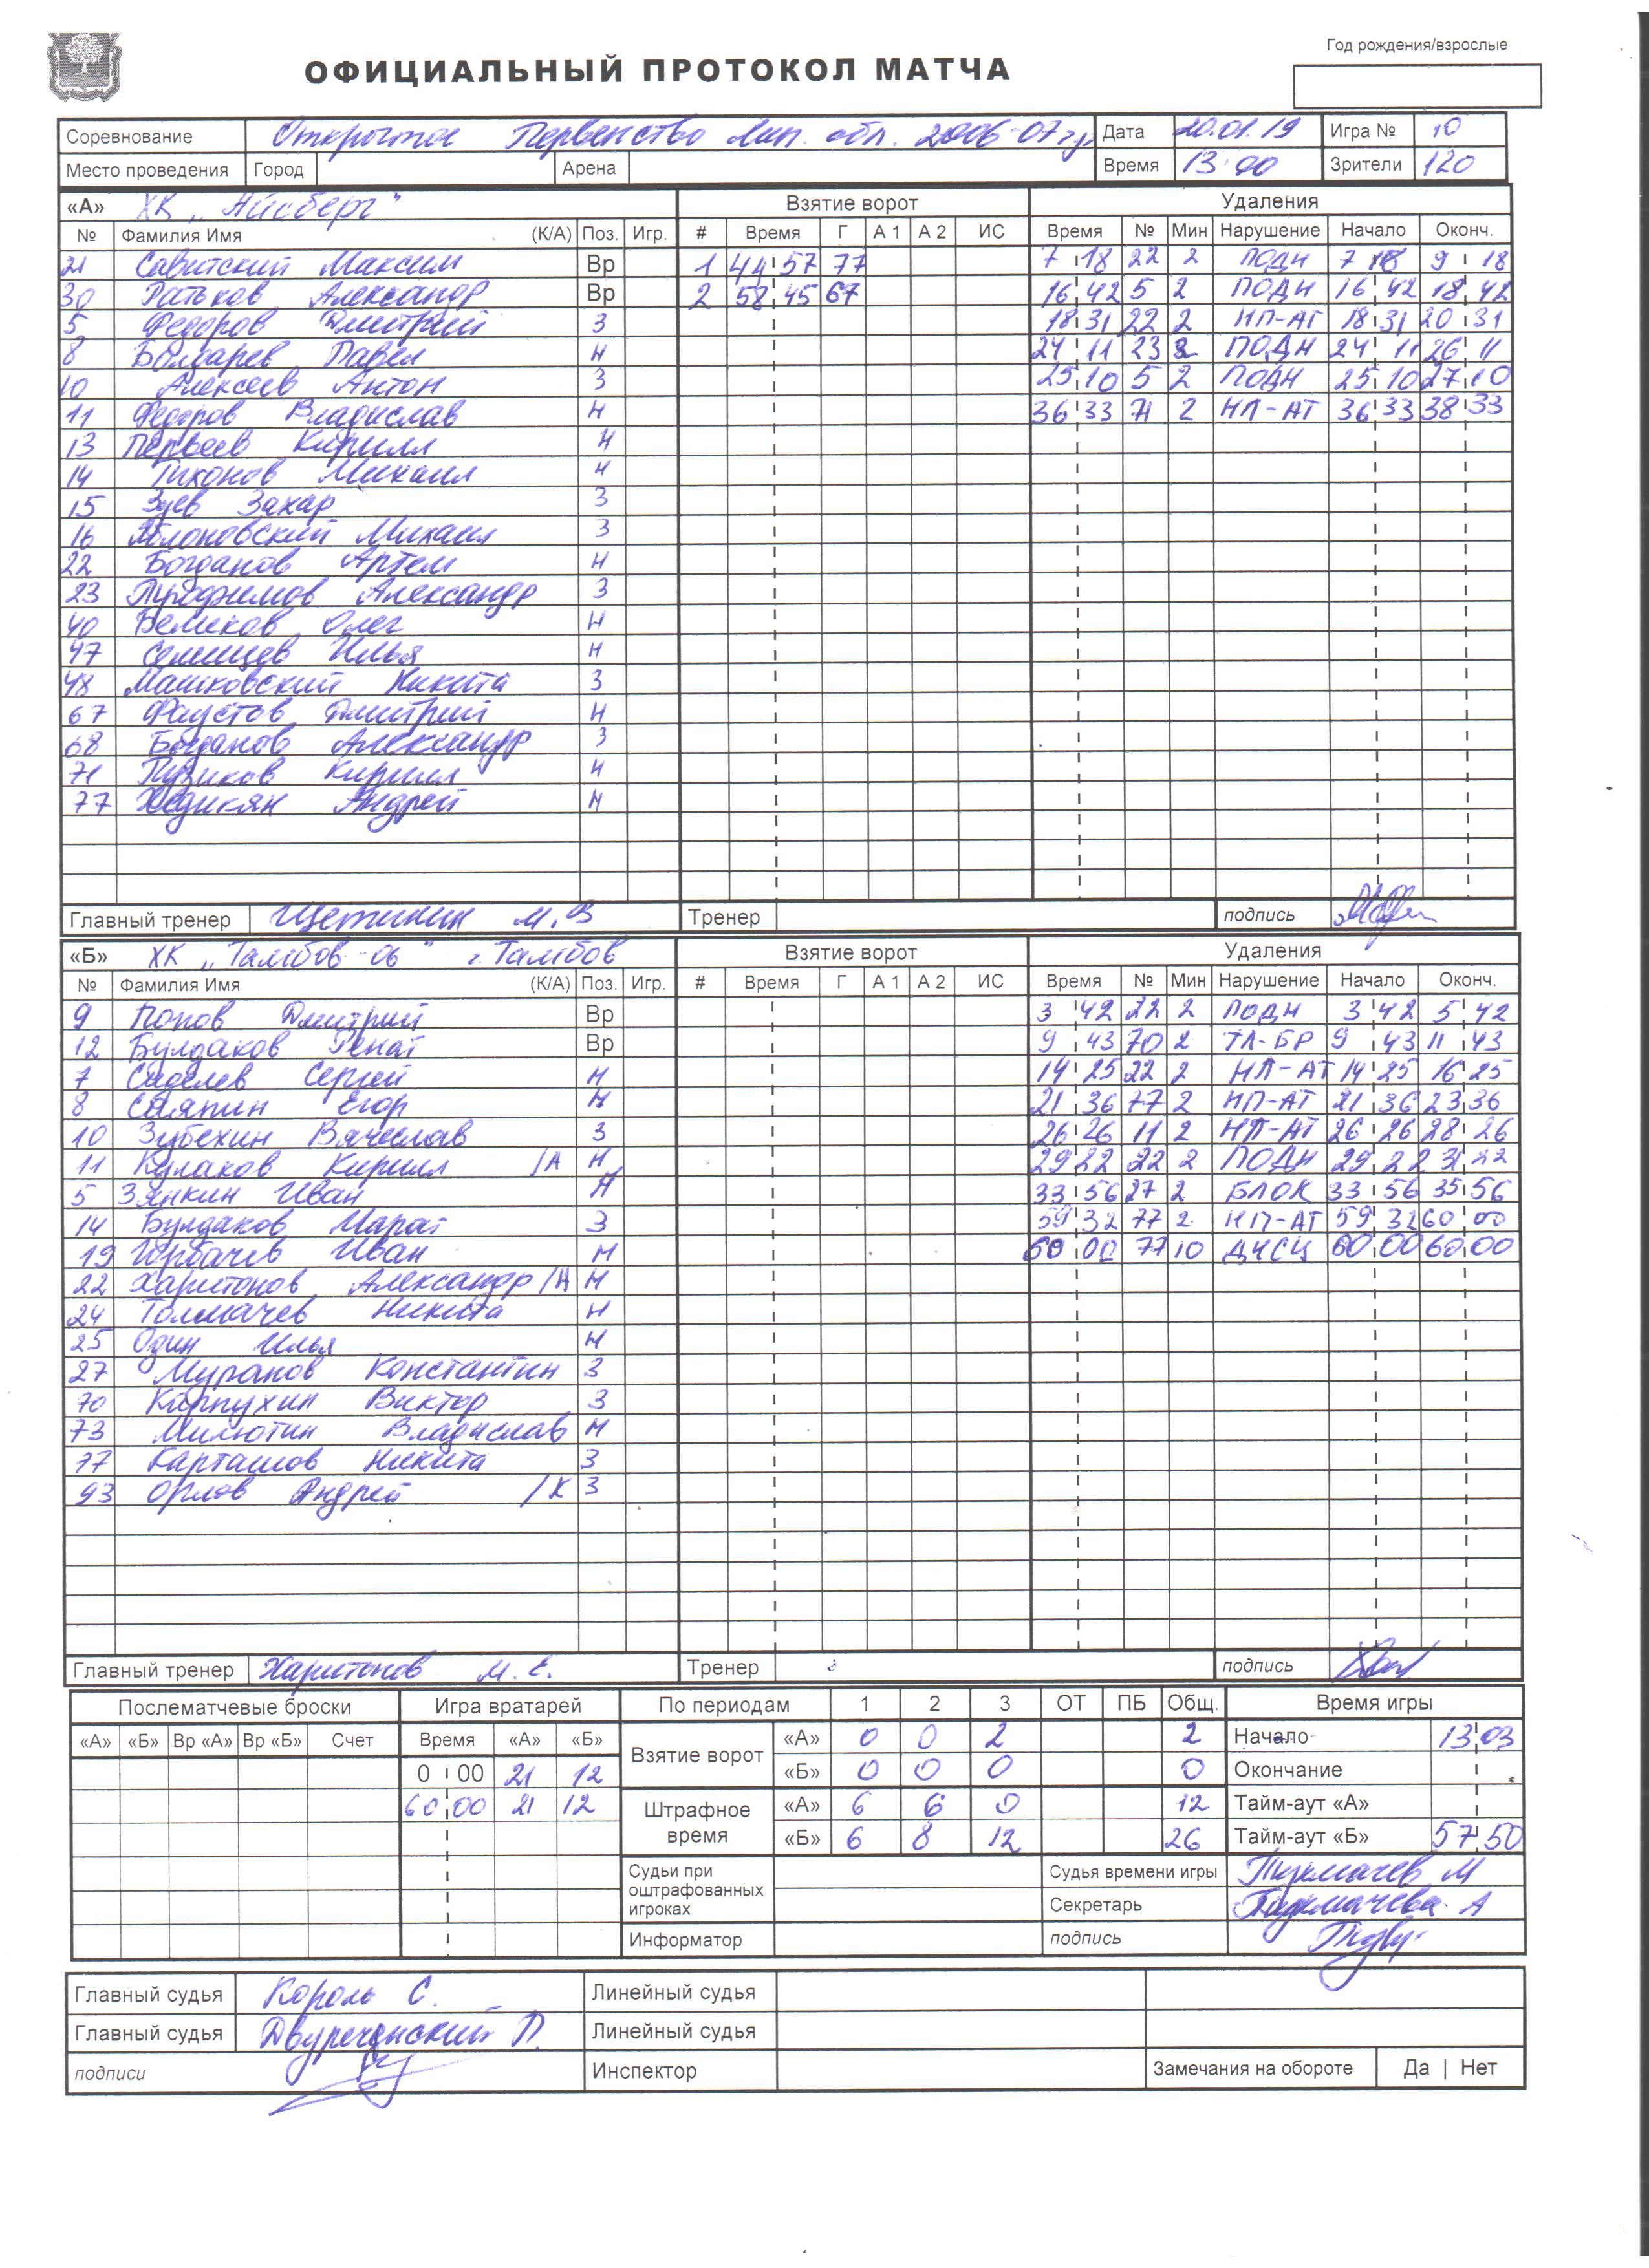 Год рождения/взрослые
ОФИЦИАЛЬНЫЙ ПРОТОКОЛ МАТЧА
Соревнование Открытое Первенство Лип. обл. 2006-07 гг. Дата 20.01.19 Игра № 10
Место проведения Город Арена Время 13 00 Зрители 120
«А» ХК „Айсберг" Взятие ворот Удаления
№ Фамилия Имя (К/А) Поз. Игр. # Время Г А 1 А 2 ИС Время № Мин Нарушение Начало Оконч.
21 Савитский Максим Вр 1 44 57 77 7 18 22 2 ПОДН 7 18 9 18
30 Ратьков Александр Вр 2 58 45 67 16 42 5 2 ПОДН 16 42 18 42
5 Федоров Дмитрий З 18 31 22 2 НП-АТ 18 31 20 31
8 Болдарев Павел Н 24 11 23 2 ПОДН 24 11 26 11
10 Алексеев Антон З 25 10 5 2 ПОДН 25 10 27 10
11 Федоров Владислав Н 36 33 71 2 НП-АТ 36 33 38 33
13 Первеев Кирилл Н
14 Тихонов Михаил Н
15 Зуев Захар З
16 Михаил З
22 Богданов Артем Н
23 Трофимов Александр З
40 Беликов Олег Н
47 Селищев Илья Н
48 Машковский Никита З
67 Фаустов Дмитрий Н
68 Богданов Александр З
71 Пузиков Кирилл Н
77 Хедикян Андрей Н
Главный тренер Щетинин М.В Тренер подпись
«Б» ХК „Тамбов-06" г. Тамбов Взятие ворот Удаления
№ Фамилия Имя (К/А) Поз. Игр. # Время Г А 1 А 2 ИС Время № Мин Нарушение Начало Оконч.
9 Попов Дмитрий Вр 3 42 22 2 ПОДН 3 42 5 42
12 Булдаков Ренат Вр 9 43 70 2 ТЛ-БР 9 43 11 43
7 Сиделев Сергей Н 14 25 22 2 НП-АТ 14 25 16 25
8 Саяпин Егор Н 21 36 77 2 НП-АТ 21 36 23 36
10 Зубехин Вячеслав З 26 26 11 2 НП-АТ 26 26 28 26
11 Кулаков Кирилл /А Н 29 22 22 2 ПОДН 29 22 31 22
5 Зянкин Иван Н 33 56 27 2 БЛОК 33 56 35 56
14 Булдаков Марат З 59 32 77 2 НП-АТ 59 32 60 00
19 Горбачев Иван Н 60 00 77 10 ДИСЦ 60 00 60 00
22 Харитонов Александр /А Н
24 Толмачев Никита Н
25 Один Илья Н
27 Муранов Константин З
70 Карпухин Виктор З
73 Милютин Владислав Н
77 Карташов Никита З
93 Орлов Андрей /К З
Главный тренер Харитонов М. Е. Тренер подпись
Послематчевые броски Игра вратарей По периодам 1 2 3 ОТ ПБ Общ. Время игры
«А» «Б» Вр «А» Вр «Б» Счет Время «А» «Б» Взятие ворот «А» 0 0 2 2 Начало 13 03
0 00 21 12 «Б» 0 0 0 0 Окончание
60 00 21 12 Штрафное время «А» 6 6 0 12 Тайм-аут «А»
«Б» 6 8 12 26 Тайм-аут «Б» 57 50
Судьи при оштрафованных игроках Судья времени игры М
Секретарь А
Информатор подпись
Главный судья Король С. Линейный судья
Главный судья Двуреченский П. Линейный судья
подписи Инспектор Замечания на обороте Да | Нет